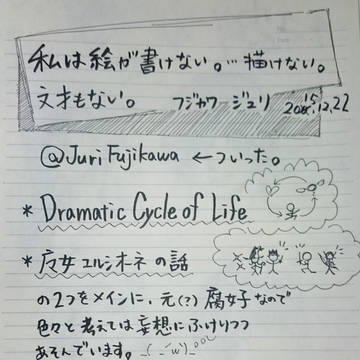 私は絵が書けない。…描けない。
文才もない。 フジカワージュリ 2015.12.22
@JuriFujikawa ←ついった。
* Dramatic Cycle of Life
* 魔女エルシオネの話
の2つをメインに、元(?)腐女子なので
色々と考えては妄想にふけりつつ
あそんでいます。